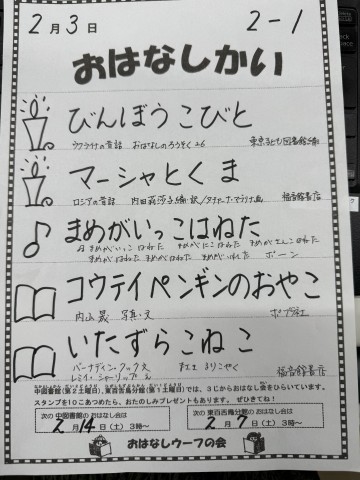 2月3日 2-1
おはなしかい
びんぼうこびと
ウクライナの昔話 おはなしのろうそく 東京子ども図書館
マーシャとくま
ロシアの昔話 内田莉莎子 編・訳/タチヤーナ・マブリナ 画 福音館書店
まめがいっこはねた
まめがいっこはねた まめがにこはねた まめがさんこはねた
まめがはねた まめがはねた まめが ポーン
コウテイペンギンのおやこ
内山晟 写真・文 ポプラ社
いたずらこねこ
バーナディン・クック 文 まさき るりこ やく 福音館書店
レミイ・シャーリップ え
中図書館(第2土曜日)、東百舌鳥分館(第1土曜日)では、3じからおはなし会をひらいています。
スタンプを10こあつめたら、おたのしみプレゼントもあります。 ぜひきてね!
次の 中図書館の おはなし会は 次の 東百舌鳥分館の おはなし会は
2月14日(土)3時~ 2月7日(土)3時~
おはなしウーフの会